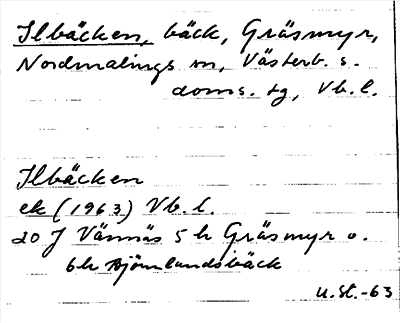 Ilbäcken, bäck, Gräsmyr,
Nordmalings sn, Västerb. s.
doms. tg, Vb. l.
Ilbäcken
ek (1963) Vb. l.
20 J Vännäs 5 h Gräsmyr o.
6h Björnlandsbäck
U. St. -63